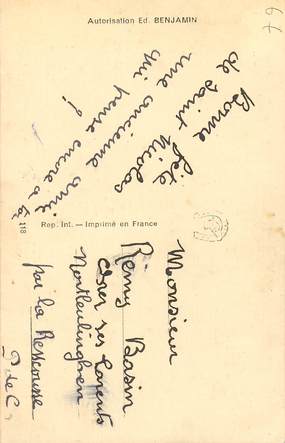 Autorisation Ed. BENJAMIN
67
Bonne fête
de saint Nicolas
une ancienne amie
qui pense encore à
118
Rep. Int. — Imprimé en France
Monsieur
Rémy Basin
chez ses parents
Nortleulinghen
par la Recousse
P de C